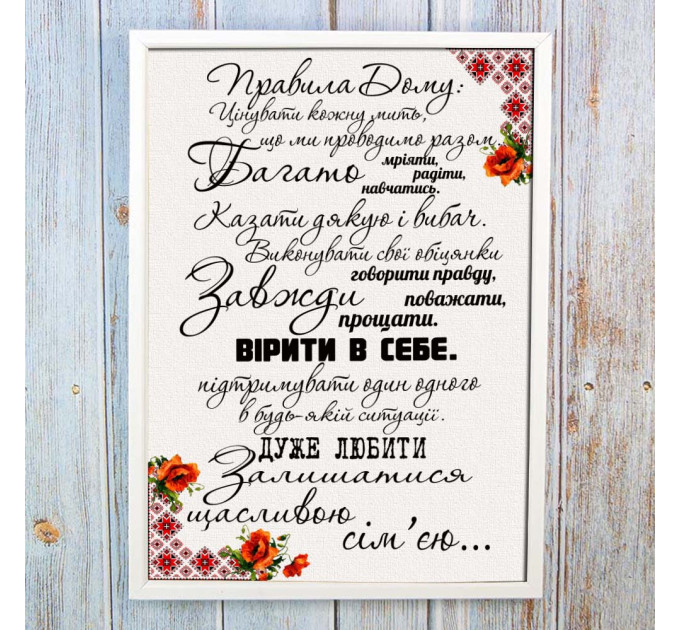 Правила Дому:
Цінувати кожну мить,
що ми проводимо разом.
Багато мріяти,
радіти,
навчатись.
Казати дякую і вибач.
Виконувати свої обіцянки
Завжди говорити правду,
поважати,
прощати.
ВІРИТИ В СЕБЕ.
підтримувати один одного
в будь-якій ситуації.
ДУЖЕ ЛЮБИТИ
Залишатися
щасливою
сім'єю...